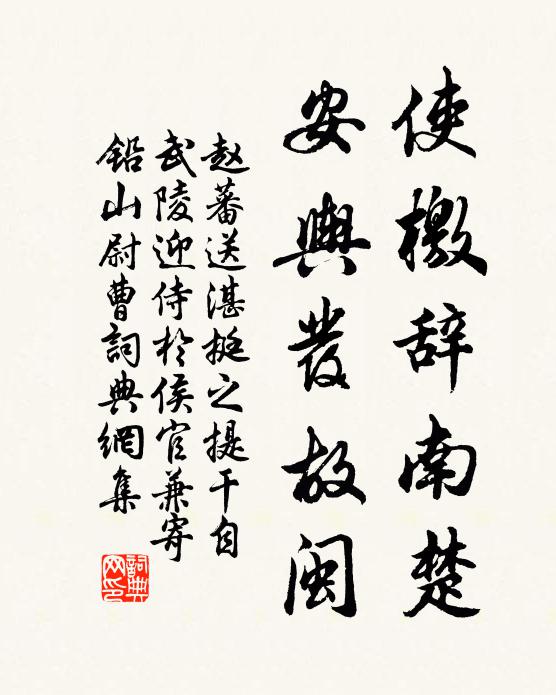 使檄辞南楚
安輿發故闽
赵蕃送湛挺之提干自
武陵迎侍於侯官兼寄
鉛山尉曹詞典網集
詞典网印